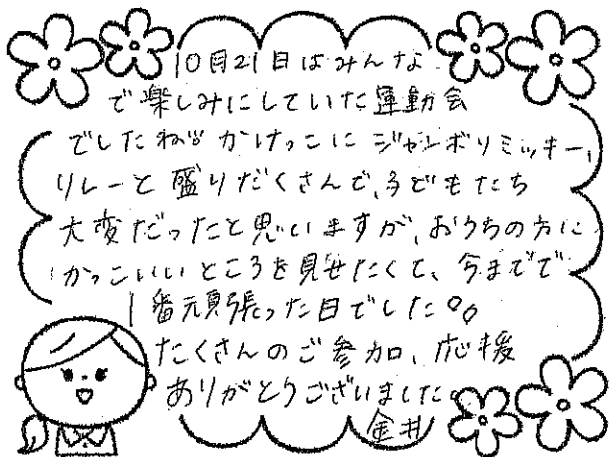 10月21日はみんな
で楽しみにしていた運動会
でしたね!! かけっこに ジャンボリミッキー、
リレーと盛りだくさんで、子どもたち
大変だったと思いますが、おうちの方に
かっこいいところを見せたくて、今までで
1番頑張った日でした。
たくさんのご参加、応援
ありがとうございました。
金井